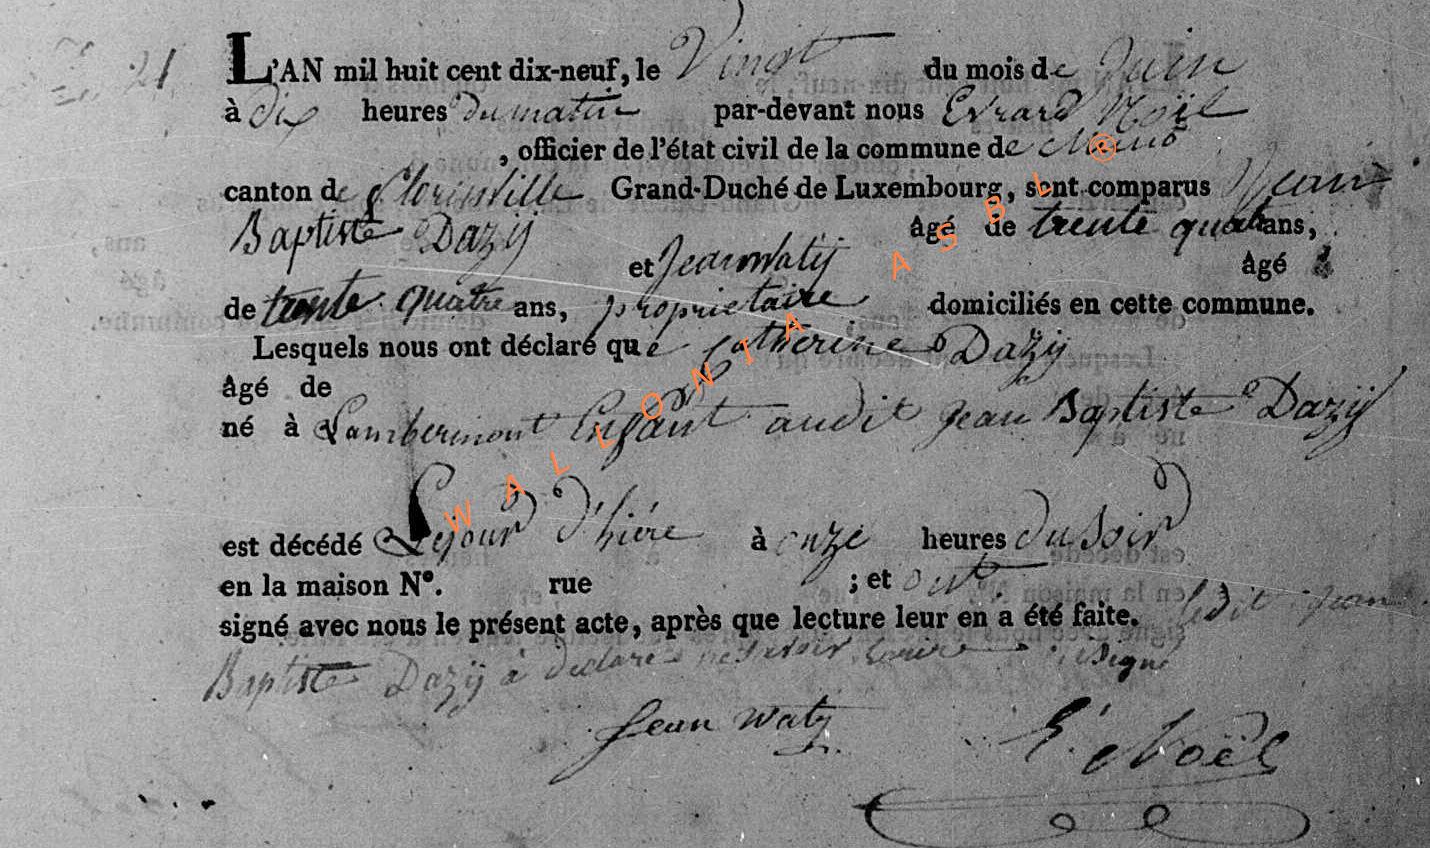 21
L'AN mil huit cent dix-neuf, le Vingt du mois de Juin
à dix heures du matin par-devant nous Evrard Noël
, officier de l'état civil de la commune de
canton de florinville Grand-Duché de Luxembourg, sont comparus Jean
Baptiste Dazÿ âgé de trente quatre ans,
et Jean watÿ âgé
de trente quatre ans, proprietaire domiciliés en cette commune.
Lesquels nous ont déclaré que Catherine Dazÿ
âgé de
né à Lambermont Enfant audit Jean Baptiste Dazÿ
est décédé Lejour d'hiére à onze heures du Soir
en la maison N°. rue ; et ont
signé avec nous le présent acte, après que lecture leur en a été faite. ledit Jean
Baptiste Dazÿ à declaré ne savoir Signé
Jean watÿ E. Noël
WALLONIA ASBL ®